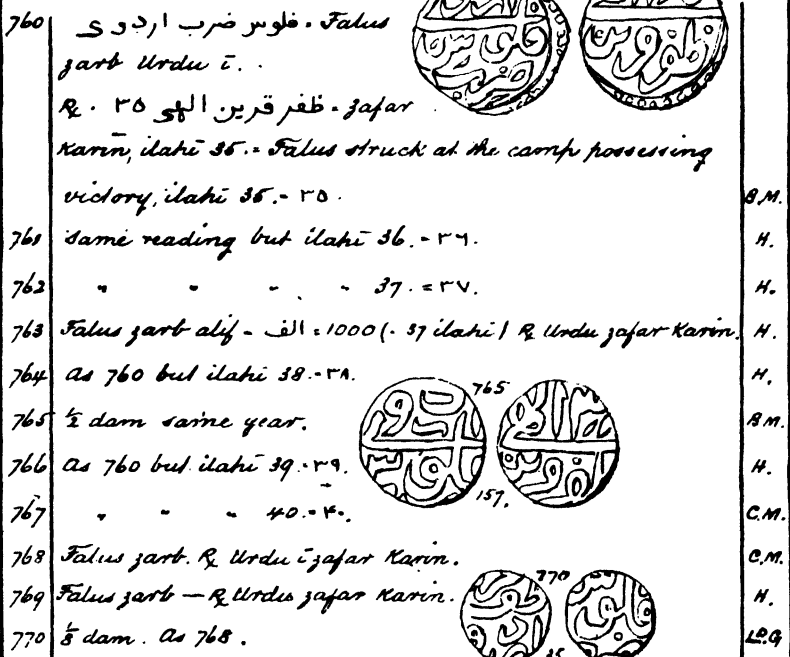 760 فلوس ضرب اردوی = Falus
zarb Urdu ī..
℞. ٣٥ ظفر قرین الهی = zafar
Karīn, ilahī 35. = Falus struck at the camp possessing
victory, ilahī 35. = ٣٥. B.M.
761 same reading but ilahī 36. = ٣٦. H.
762 " " " " 37. = ٣٧. H.
763 Falus zarb alif = الف = 1000 (. 37 ilahi) ℞ Urdu zafar Karin. H.
764 As 760 but ilahi 38. = ٣٨. H.
765
765 ½ dam same year. B.M.
766 As 760 but ilahi 39. = ٣٩. H.
157.
767 " " " 40. = ۴٠. C.M.
768 Falus zarb. ℞ Urdu ī zafar Karin. C.M.
770
769 Falus zarb — ℞ Urdu zafar Karin. H.
770 ⅛ dam. As 768.